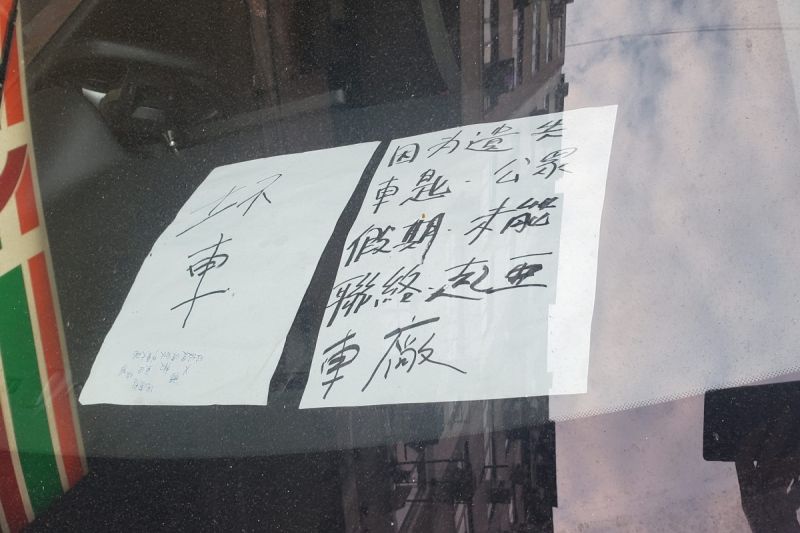 坏
車
因为遺失
車匙·公眾
假期·未能
聯終·起亚
車廠